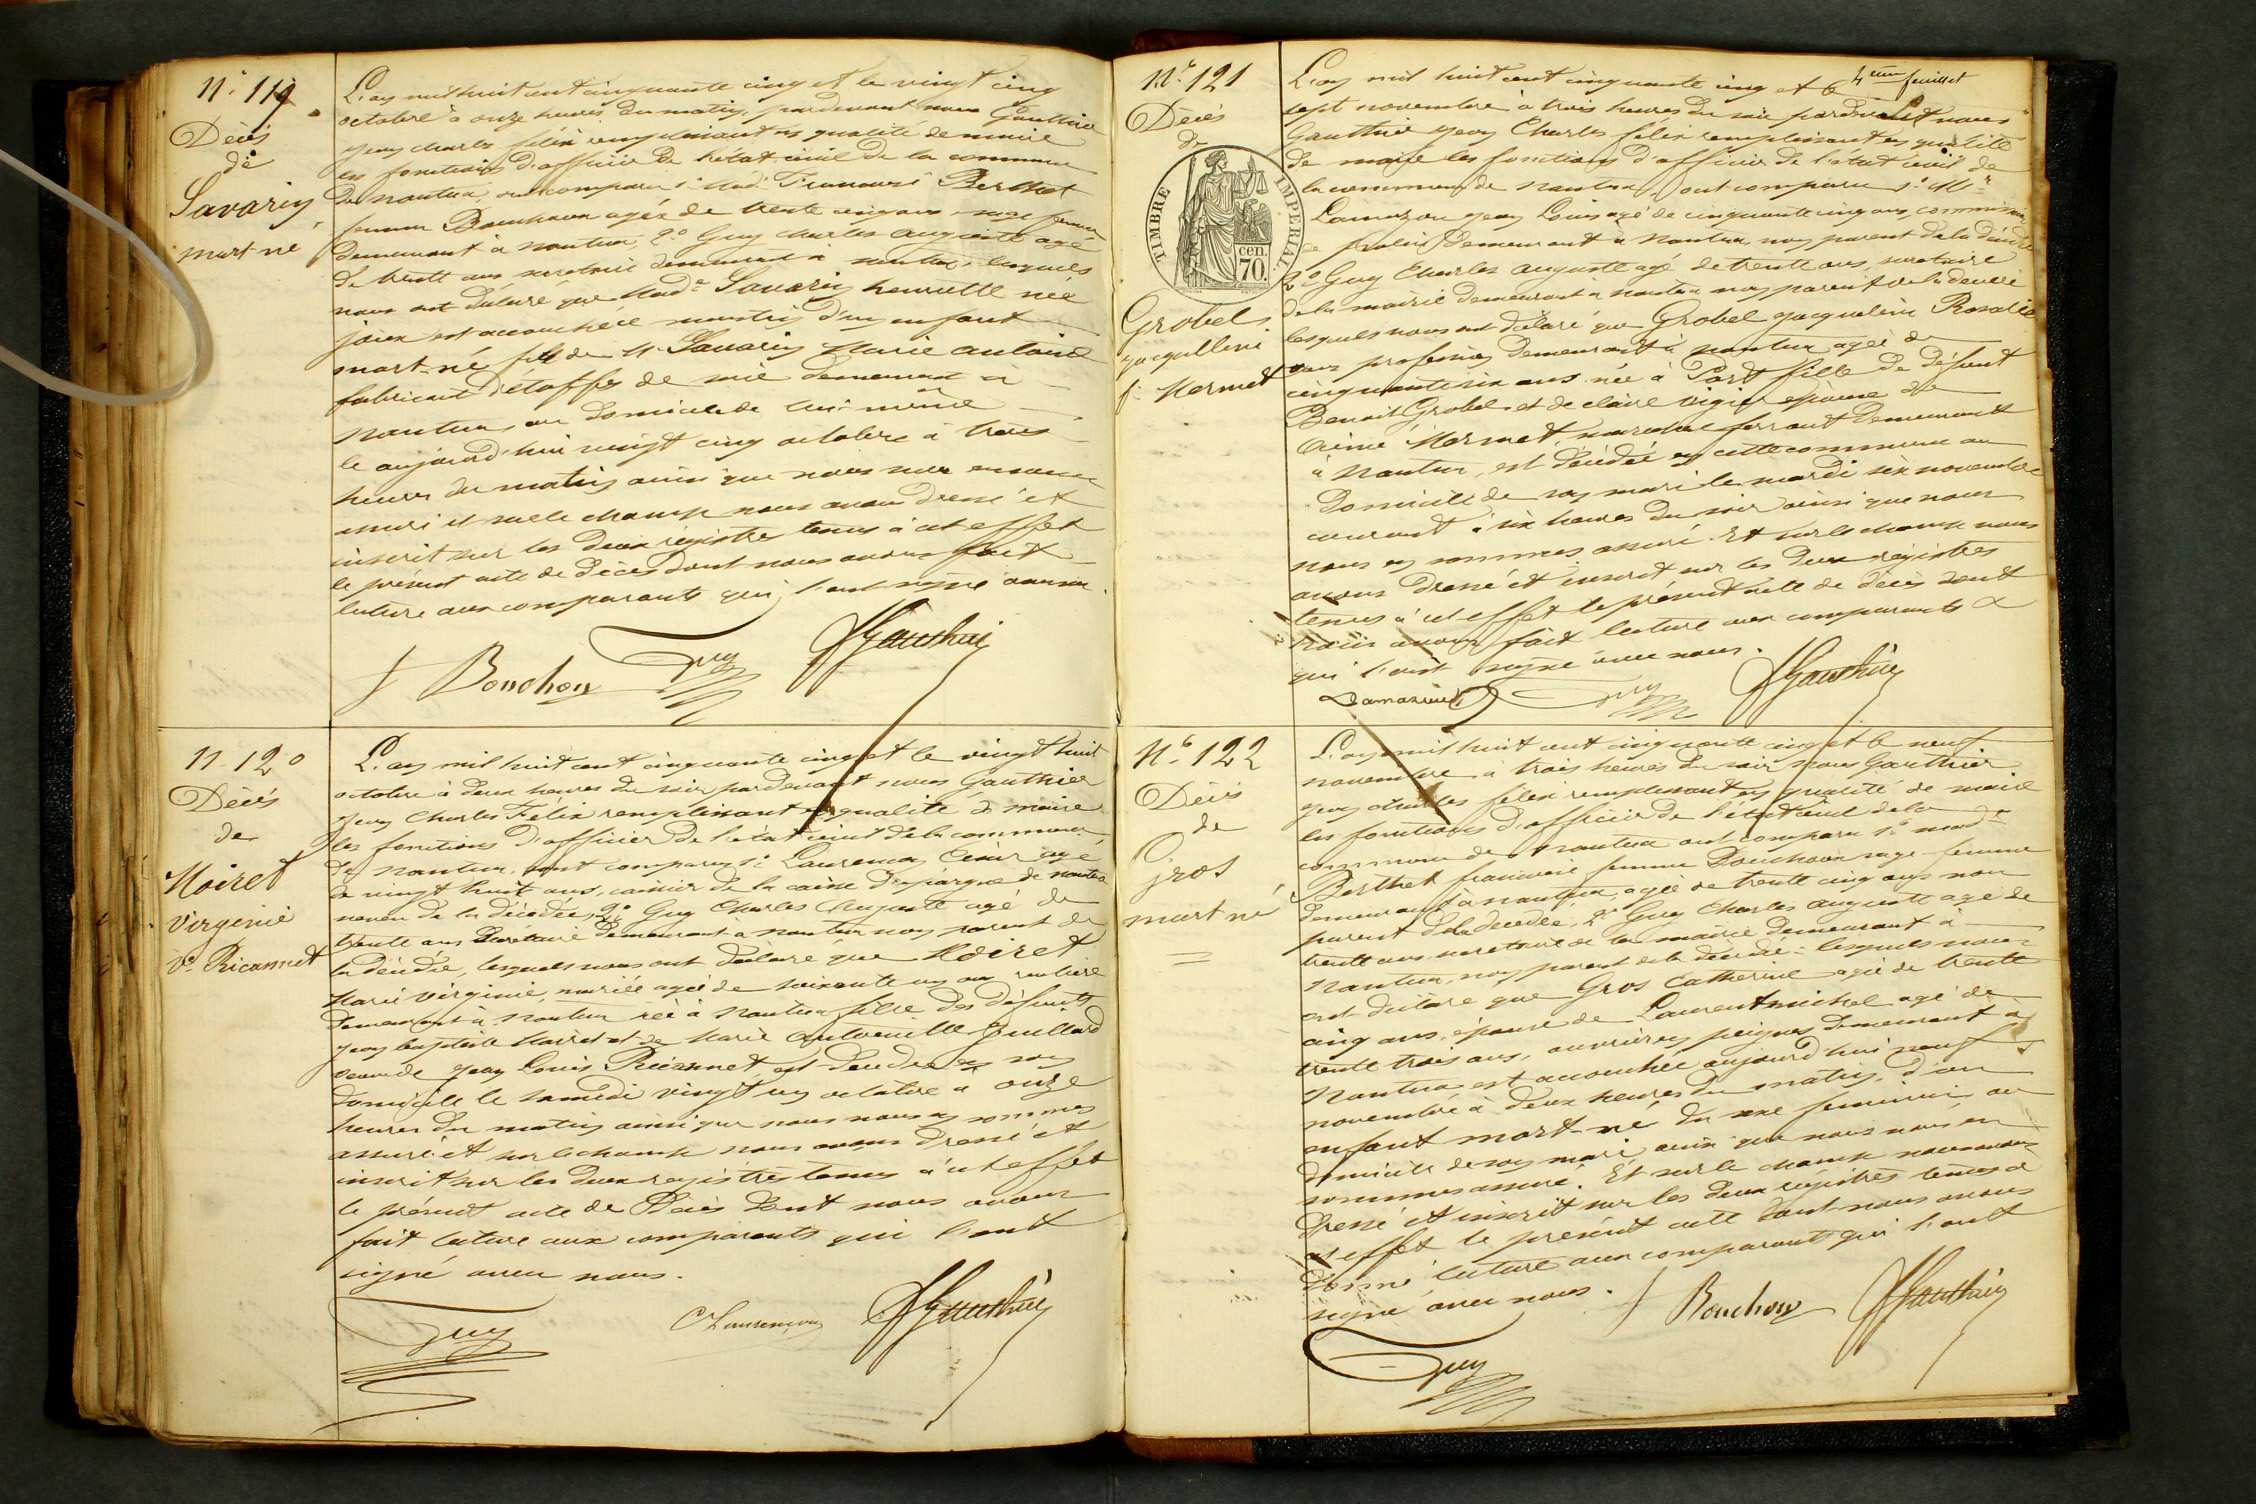 N.° 119
Décès
de
Savarin
mort-né
L'an mil huit cent cinquante cinq et le vingt cinq
octobre à onze heures du matin, pardevant nous Gauthier
Jean Charles félix remplissant en qualité de maire
les fonctions d'officier de l'état civil de la commune
de Nantua, ont comparu 1° Mad. Francoise Berthet
femme Bouchoux agée de trente cinq ans sage femme
demeurant à Nantua, 2° Guy Charles Auguste agé
de trente ans secrétaire demeurant à Nantua, lesquels
nous ont déclaré que Mad.e Savarin henriette née
est accouchée ce matin d'un enfant
mort-né, fils de Mr Savarin Marie Antoine
fabricant d'étoffes de soie demeurant à
Nantua, au domicile de lui-même
le aujourd'hui vingt cinq octobre à trois
heures du matin ainsi que nous nous en sommes
assuré et sur le champ nous avons dressé et
inscrit sur les deux registres tenus à cet effet
le présent acte de décès dont nous avons fait
lecture aux comparants qui l'ont signé avec nous.
f Bouchoux Guy JGauthier
N. 120
Décès
de
Moiret
Virginie
Ve Ricannet
L'an mil huit cent cinquante cinq et le vingt huit
octobre à deux heures du soir pardevant nous Gauthier
Jean Charles Félix remplissant en qualité de maire
les fonctions d'officier de l'état civil de la commune
de Nantua, ont comparu 1° Laurençon César agé
de vingt huit ans, caissier de la caisse d'épargne de Nantua
neveu de la décédée, 2° Guy Charles Auguste agé de
trente ans secrétaire demeurant à Nantua non parent de
la décédée, lesquels nous ont déclaré que Moiret
Marie Virginie, agée de soixante un ans rentière
demeurant à Nantua née à Nantua fille des défunts
Jean baptiste Moiret et de Marie Antoinette Juillard
veuve de Jean Louis Ricannet, est décédée en son
domicile le samedi vingt octobre à onze
heures du matin ainsi que nous nous en sommes
assuré et sur le champ nous avons dressé et
inscrit sur les deux registres tenus à cet effet
le présent acte de Décès dont nous avons
fait lecture aux comparants qui l'ont
signé avec nous.
Guy CLaurençon JGauthier
N.° 121
Décès
de
TIMBRE IMPERIAL
cen.
70.
Grobel
Jacqueline
f. Mermet
4ème feuillet
L'an mil huit cent cinquante cinq et le
sept novembre à trois heures du soir pardevant nous
Gauthier Jean Charles félix remplissant en qualité
de maire les fonctions d'officier de l'état civil de
la commune de Nantua, ont comparu 1° Mr
Jean Louis agé de cinquante cinq ans, commissaire
de police demeurant à Nantua, non parent de la décédée
2° Guy Charles auguste agé de trente ans secrétaire
de la mairie demeurant à Nantua non parent de la décédée
lesquels nous ont déclaré que Grobel Jacqueline Rosalie
sans profession demeurant à Nantua agée de
cinquante six ans née à Port fille de défunt
Benoit Grobel et de claire vigier épouse de
Aimé Mermet, maréchal ferrant demeurant
à Nantua, est décédée en cette commune au
domicile de son mari le mardi six novembre
courant à six heures du soir ainsi que nous
nous en sommes assuré. Et sur le champ nous
avons dressé et inscrit sur les deux registres
tenus à cet effet le présent acte de décès dont
nous avons fait lecture aux comparants
qui l'ont signé avec nous.
Guy JGauthier
N.° 122
Décès
de
Gros
mort né
L'an mil huit cent cinquante cinq et le neuf
novembre à trois heures du soir nous Gauthier
Jean charles félix remplissant en qualité de maire
les fonctions d'officier de l'état civil de la
commune de Nantua ont comparu 1° mad.e
Berthet francoise femme Bouchoux sage-femme
demeurant à Nantua, agée de trente cinq ans non
parent de la décédée, 2° Guy Charles Auguste agé de
trente ans secrétaire de la mairie demeurant à
Nantua, non parent de la décédée, lesquels nous
ont déclaré que Gros Catherine agée de trente
cinq ans, épouse de Laurent michel agé de
trente trois ans, ouvrier en peignes demeurant à
Nantua est accouchée aujourd'hui neuf
novembre à deux heures du matin, d'un
enfant mort-né du sexe feminin, au
domicile de son mari, ainsi que nous nous en
sommes assuré. Et sur le champ nous avons
dressé et inscrit sur les deux registres tenus à
cet effet le présent acte dont nous avons
donné lecture aux comparants qui l'ont
signé avec nous.
f Bouchoux JGauthier
Guy